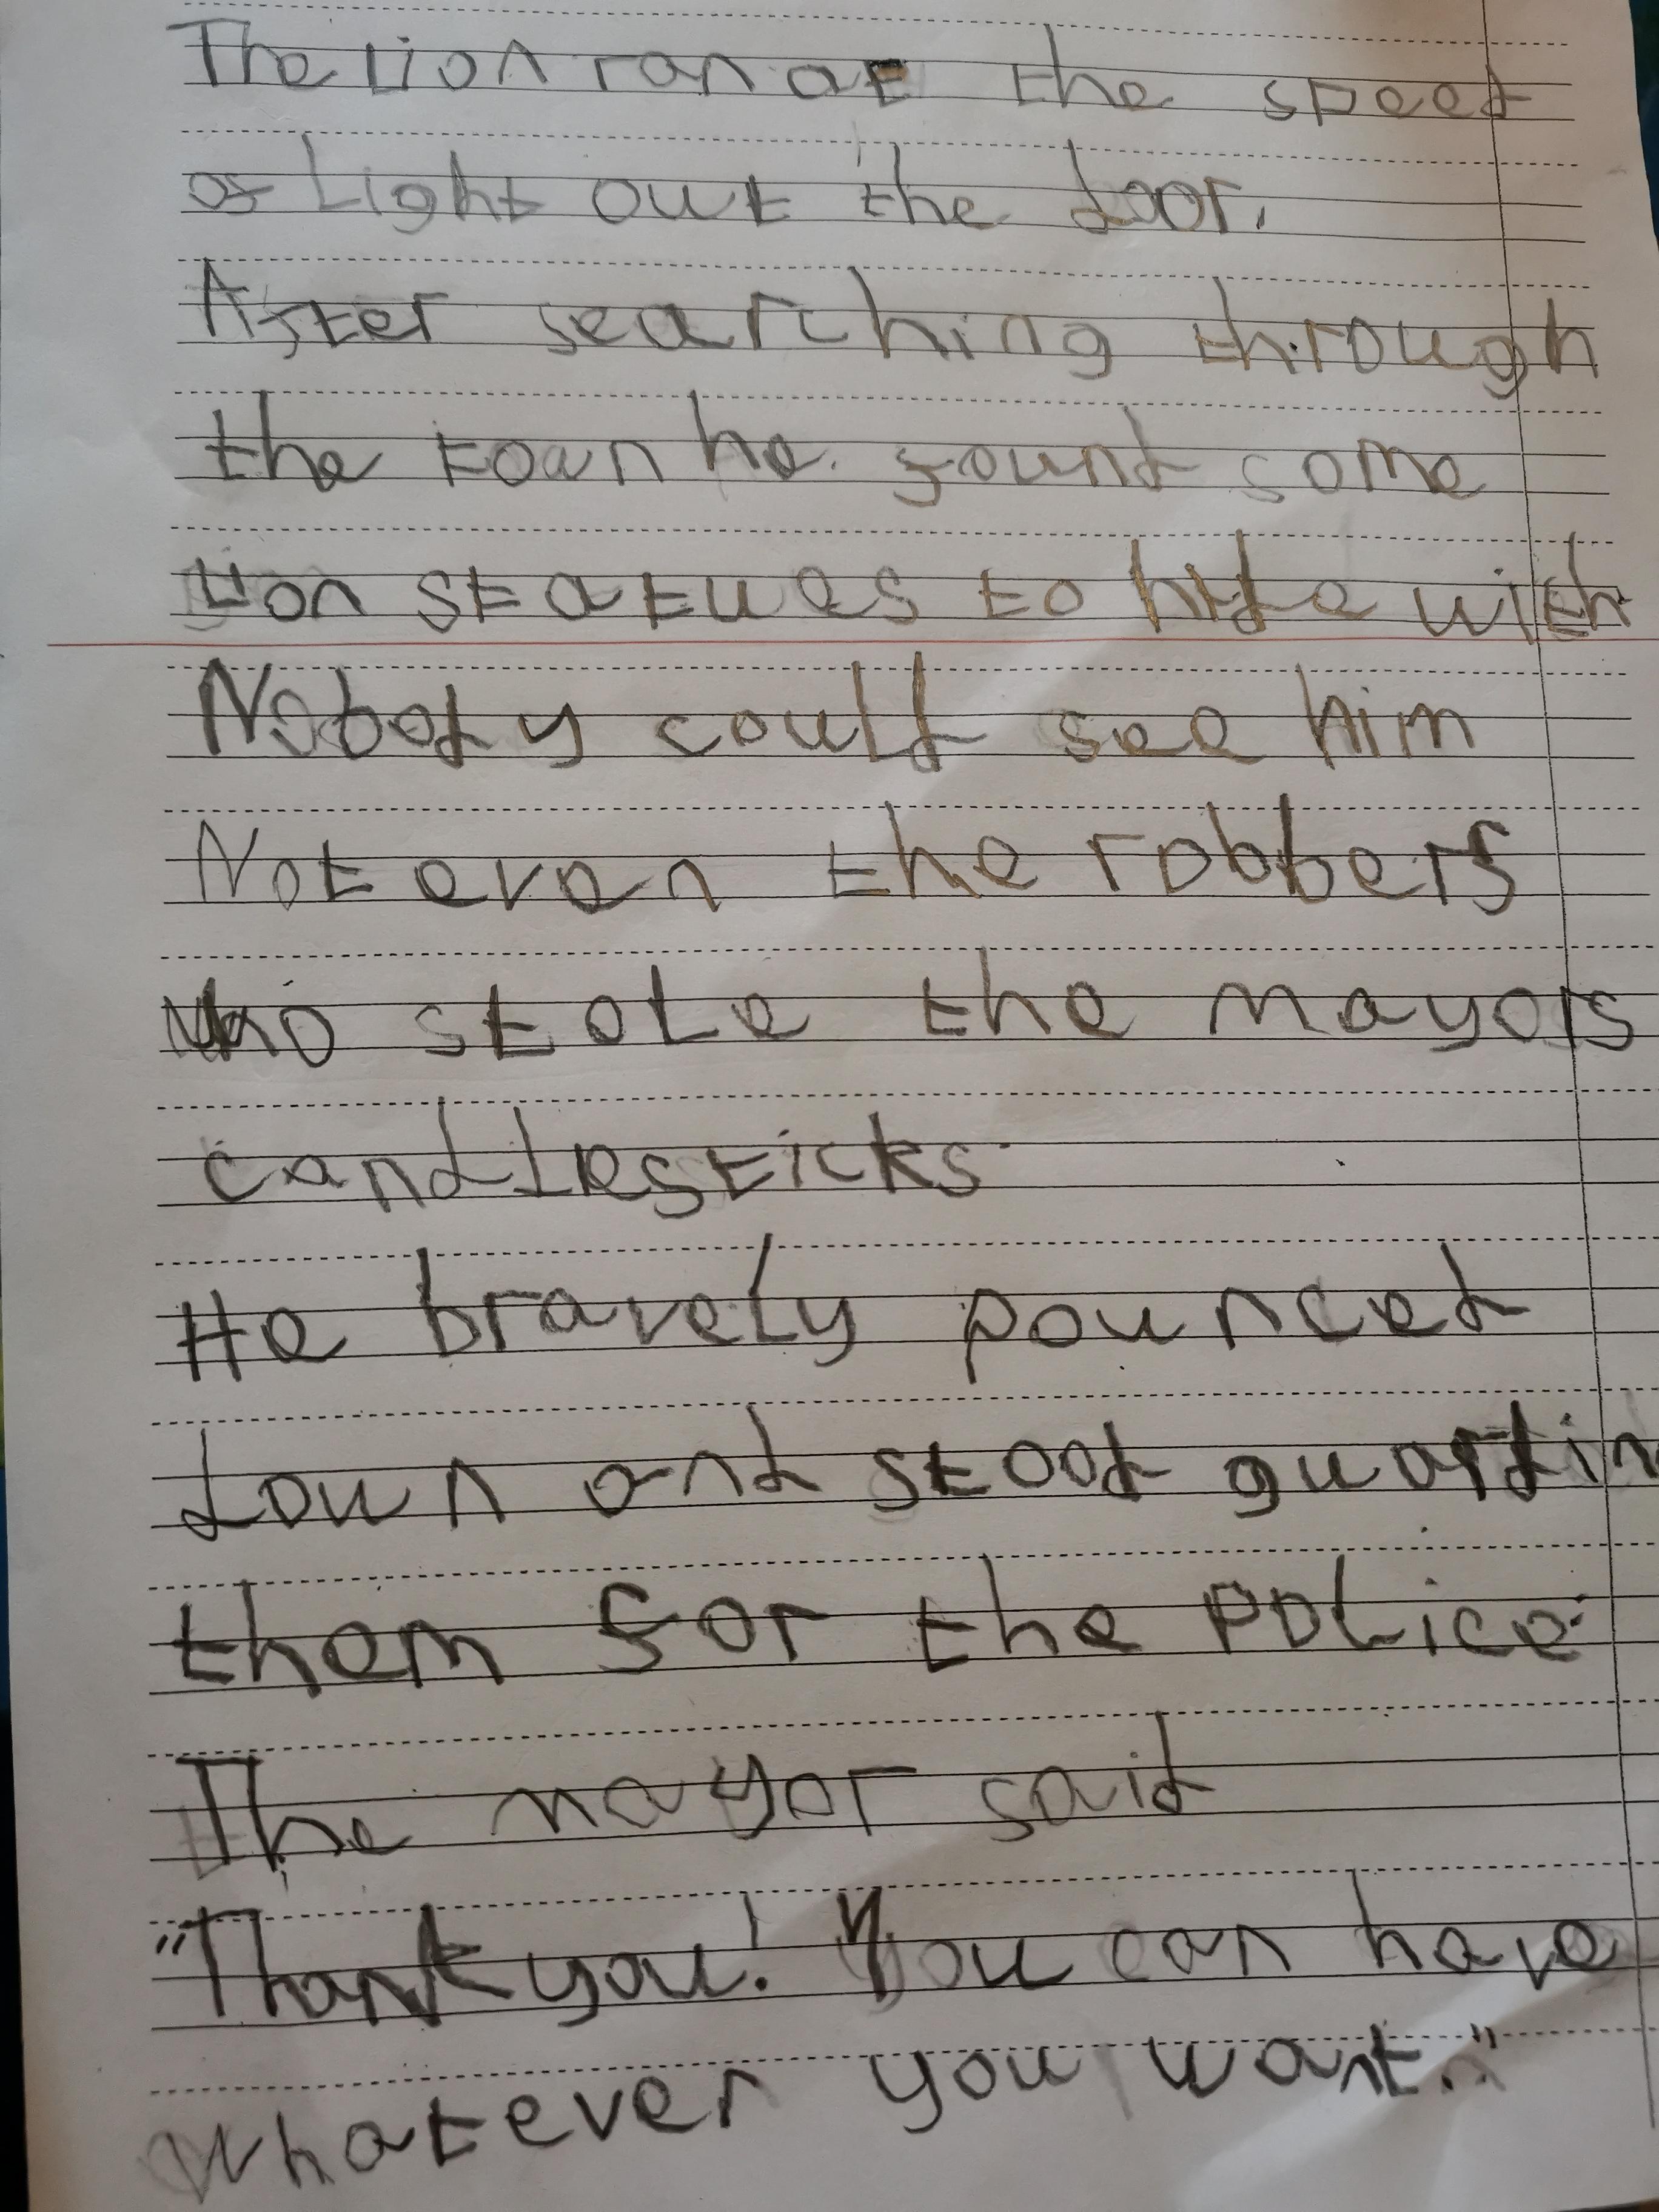 The Lion ran at the speed
of Light out the door.
After searching through
the town he found some
Lion statues to hide with
Nobody could see him
Not even the robbers
who stole the mayors
candlesticks.
He bravely pounced
down and stood guardin
them for the police.
The mayor said
"Thank you! You can have
whatever you want."